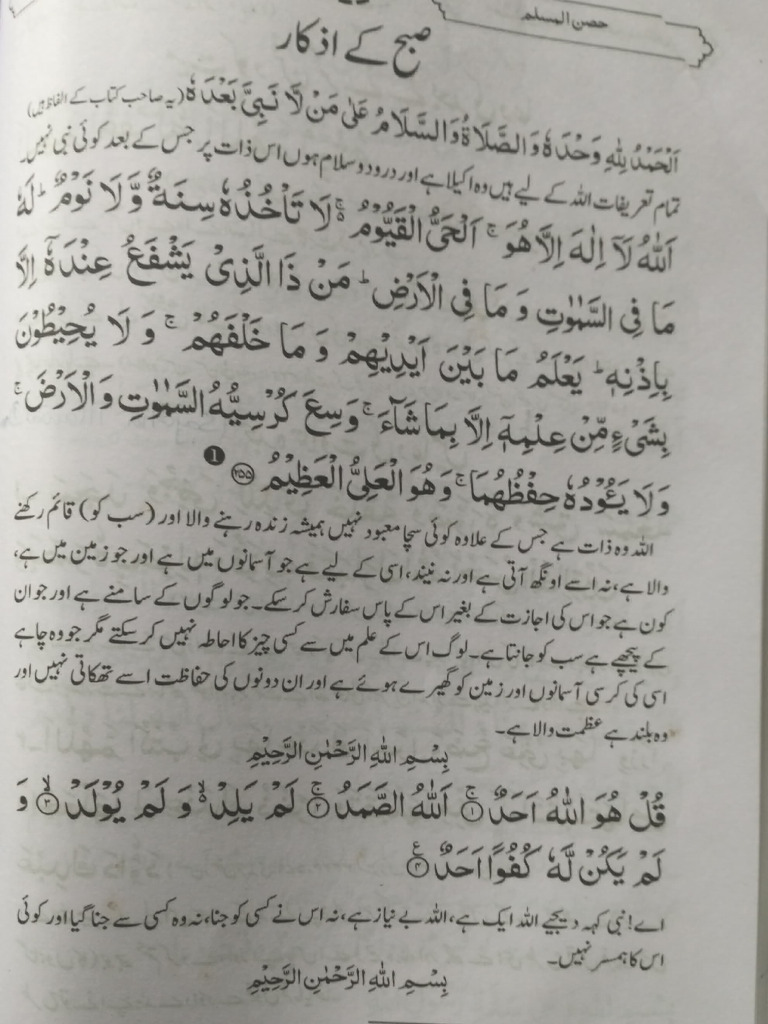 حصن المسلم
صبح کے اذکار
اَلْحَمْدُ لِلّٰهِ وَحْدَهٗ وَالصَّلَاةُ وَالسَّلَامُ عَلٰی مَنْ لَّا نَبِیَّ بَعْدَهٗ (یہ صاحب کتاب کے الفاظ ہیں)
تمام تعریفات اللہ کے لیے ہیں وہ اکیلا ہے اور درود و سلام ہوں اس ذات پر جس کے بعد کوئی نبی نہیں۔
اَللّٰهُ لَاۤ اِلٰهَ اِلَّا هُوَ ۚ اَلْحَیُّ الْقَیُّوْمُ ۚ۬ لَا تَاْخُذُهٗ سِنَةٌ وَّ لَا نَوْمٌ ؕ لَهٗ
مَا فِی السَّمٰوٰتِ وَ مَا فِی الْاَرْضِ ؕ مَنْ ذَا الَّذِیْ یَشْفَعُ عِنْدَهٗۤ اِلَّا
بِاِذْنِهٖ ؕ یَعْلَمُ مَا بَیْنَ اَیْدِیْهِمْ وَ مَا خَلْفَهُمْ ۚ وَ لَا یُحِیْطُوْنَ
بِشَیْءٍ مِّنْ عِلْمِهٖۤ اِلَّا بِمَا شَآءَ ۚ وَسِعَ کُرْسِیُّهُ السَّمٰوٰتِ وَ الْاَرْضَ ۚ
وَ لَا یَـُٔوْدُهٗ حِفْظُهُمَا ۚ وَ هُوَ الْعَلِیُّ الْعَظِیْمُ ﴿۲۵۵﴾ ❶
اللہ وہ ذات ہے جس کے علاوہ کوئی سچا معبود نہیں ہمیشہ زندہ رہنے والا اور (سب کو) قائم رکھنے
والا ہے، نہ اسے اونگھ آتی ہے اور نہ نیند، اسی کے لیے ہے جو آسمانوں میں ہے اور جو زمین میں ہے،
کون ہے جو اس کی اجازت کے بغیر اس کے پاس سفارش کر سکے۔ جو لوگوں کے سامنے ہے اور جو ان
کے پیچھے ہے سب کو جانتا ہے۔ لوگ اس کے علم میں سے کسی چیز کا احاطہ نہیں کر سکتے مگر جو وہ چاہے
اسی کی کرسی آسمانوں اور زمین کو گھیرے ہوئے ہے اور ان دونوں کی حفاظت اسے تھکاتی نہیں اور
وہ بلند ہے عظمت والا ہے۔
بِسْمِ اللّٰهِ الرَّحْمٰنِ الرَّحِیْمِ
قُلْ هُوَ اللّٰهُ اَحَدٌ ۚ﴿۱﴾ اَللّٰهُ الصَّمَدُ ۚ﴿۲﴾ لَمْ یَلِدْ ۙ۬ وَ لَمْ یُوْلَدْ ۙ﴿۳﴾ وَ
لَمْ یَکُنْ لَّهٗ کُفُوًا اَحَدٌ ﴿۴﴾
اے! نبی کہہ دیجیے اللہ ایک ہے، اللہ بے نیاز ہے، نہ اس نے کسی کو جنا، نہ وہ کسی سے جنا گیا اور کوئی
اس کا ہمسر نہیں۔
بِسْمِ اللّٰهِ الرَّحْمٰنِ الرَّحِیْمِ